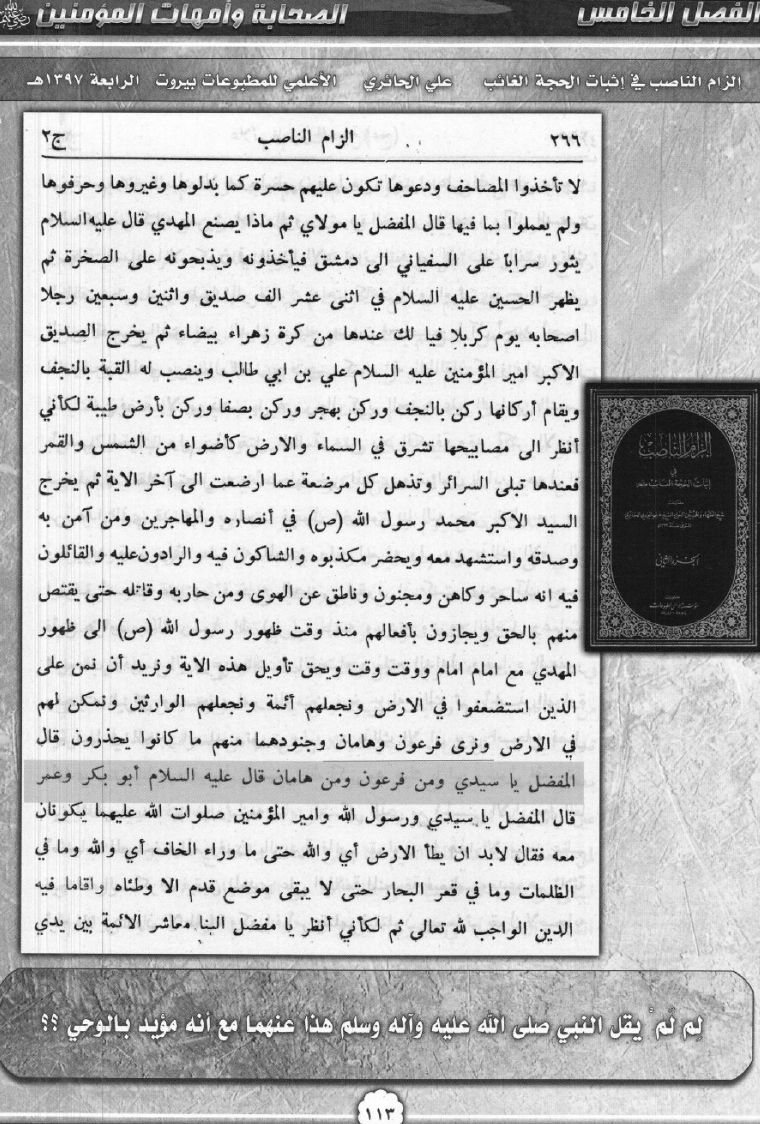 الفصل الخامس
الصحابة وأمهات المؤمنين
الزام الناصب في إثبات الحجة الغائب علي الحائري الأعلمي للمطبوعات بيروت الرابعة ١٣٩٧هـ
٢٦٦ الزام الناصب ج٢
لا تأخذوا المصاحف ودعوها تكون عليهم حسرة كما بدلوها وغيروها وحرفوها
ولم يعملوا بما فيها قال المفضل يا مولاي ثم ماذا يصنع المهدي قال عليه السلام
يثور سرابا على السفياني الى دمشق فيأخذونه ويذبحونه على الصخرة ثم
يظهر الحسين عليه السلام في اثنى عشر الف صديق واثنين وسبعين رجلا
اصحابه يوم كربلا فيا لك عندها من كرة زهراء بيضاء ثم يخرج الصديق
الاكبر امير المؤمنين عليه السلام علي بن ابي طالب وينصب له القبة بالنجف
ويقام أركانها ركن بالنجف وركن بهجر وركن بصفا وركن بأرض طيبة لكأني
أنظر الى مصابيحها تشرق في السماء والارض كأضواء من الشمس والقمر
فعندها تبلى السرائر وتذهل كل مرضعة عما ارضعت الى آخر الاية ثم يخرج
السيد الاكبر محمد رسول الله (ص) في أنصاره والمهاجرين ومن آمن به
وصدقه واستشهد معه ويحضر مكذبوه والشاكون فيه والرادون عليه والقائلون
فيه انه ساحر وكاهن ومجنون وناطق عن الهوى ومن حاربه وقاتله حتى يقتص
منهم بالحق ويجازون بأفعالهم منذ وقت ظهور رسول الله (ص) الى ظهور
المهدي مع امام امام ووقت وقت ويحق تأويل هذه الاية ونريد أن نمن على
الذين استضعفوا في الارض ونجعلهم أئمة ونجعلهم الوارثين ونمكن لهم
في الارض ونرى فرعون وهامان وجنودهما منهم ما كانوا يحذرون قال
المفضل يا سيدي ومن فرعون ومن هامان قال عليه السلام أبو بكر وعمر
قال المفضل يا سيدي ورسول الله وامير المؤمنين صلوات الله عليهما يكونان
معه فقال لابد ان يطأ الارض أي والله حتى ما وراء الخاف أي والله وما في
الظلمات وما في قعر البحار حتى لا يبقى موضع قدم الا وطئاه واقاما فيه
الدين الواجب لله تعالى ثم لكأني أنظر يا مفضل البنا معاشر الائمة بين يدي
إلزام الناصب
في
إثبات الحجة الغائب
الجزء الثاني
لِم لَمْ يقل النبي صلى الله عليه وآله وسلم هذا عنهما مع أنه مؤيد بالوحي ؟؟
١١٣